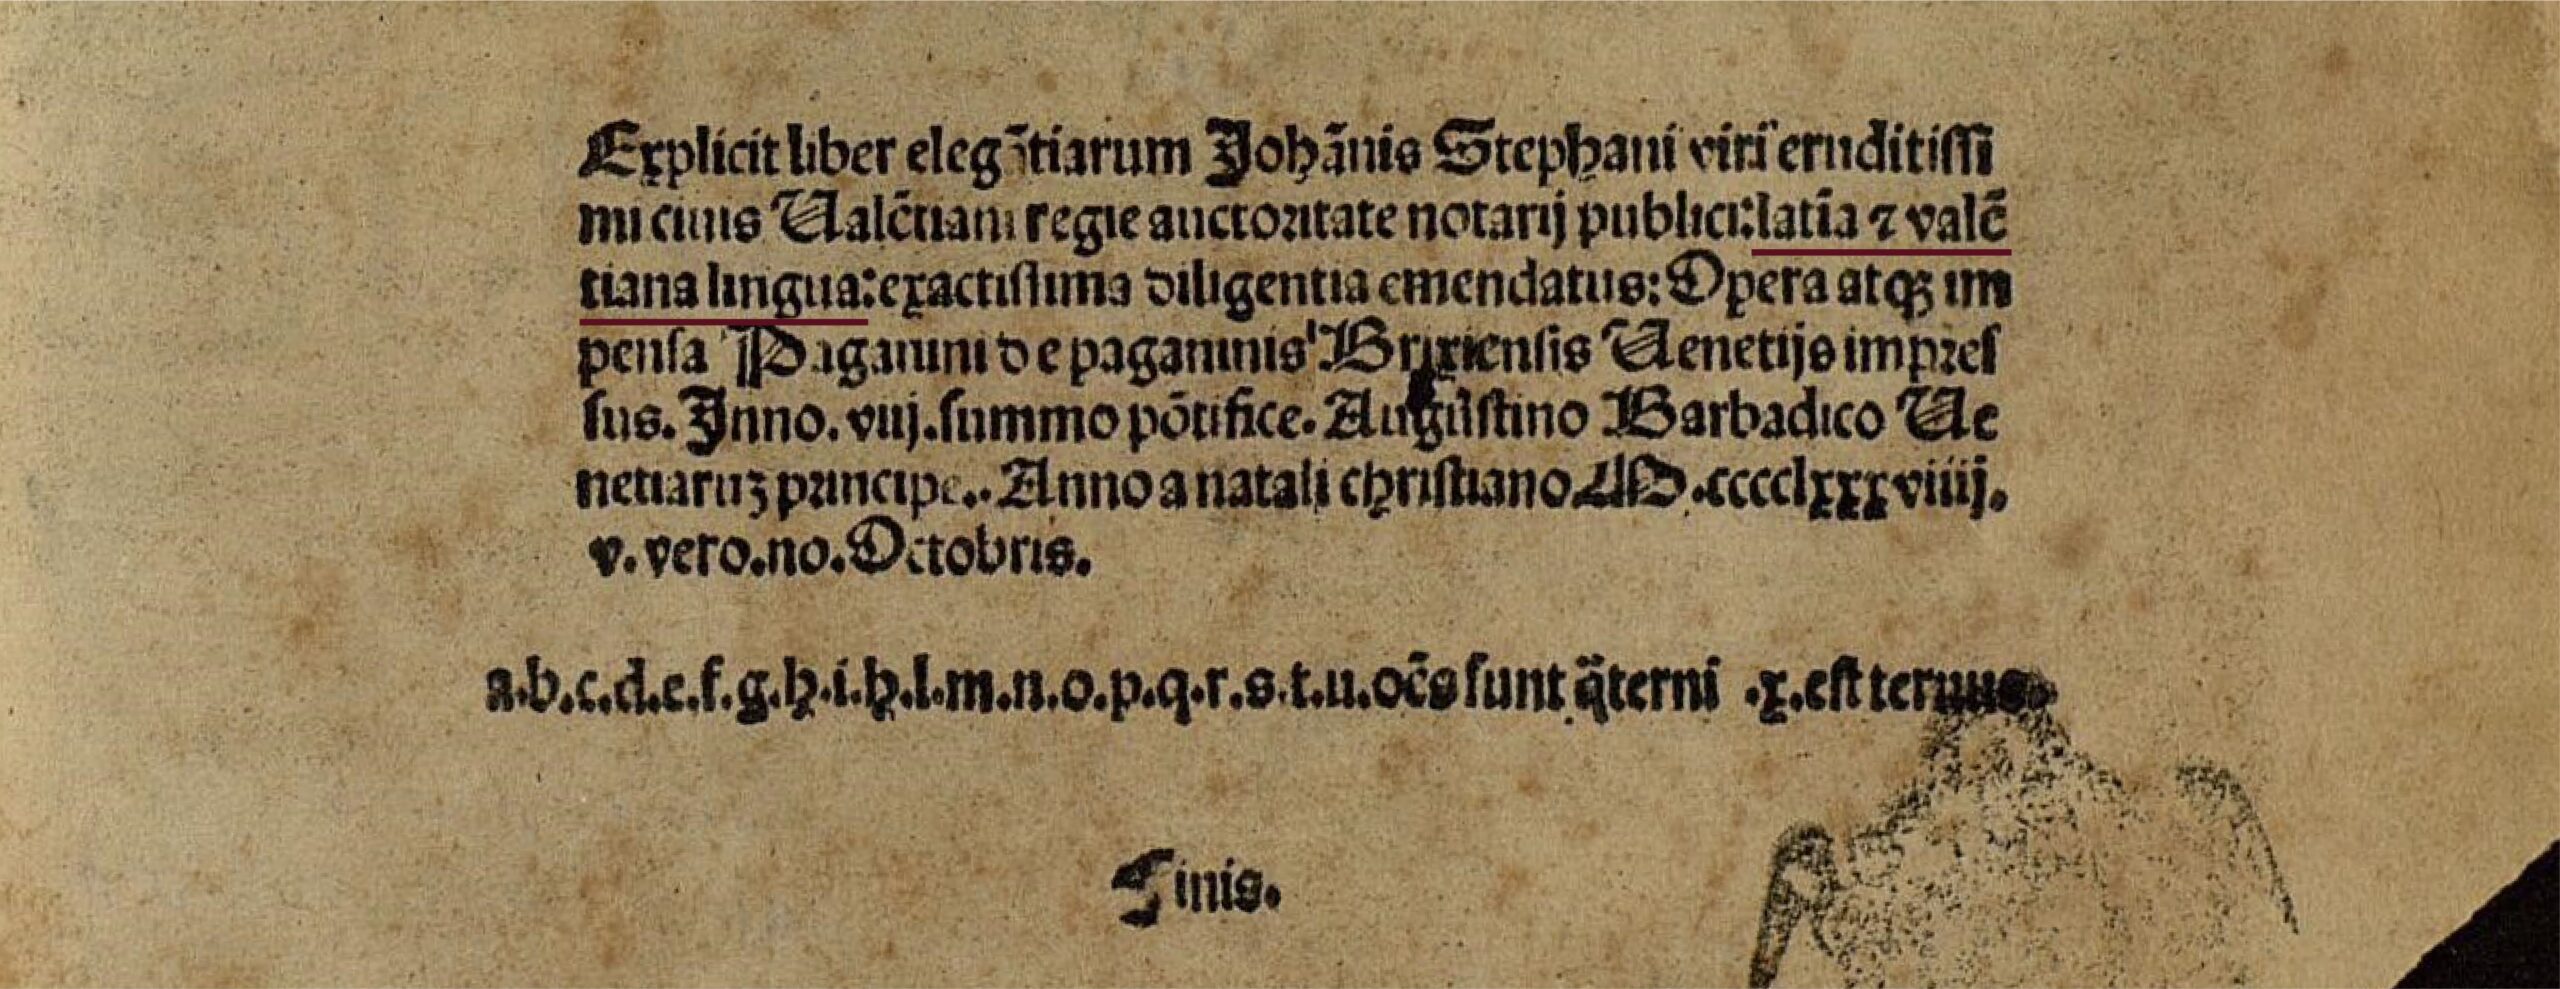 Explicit liber elegãtiarum Johãnis Stephani viri eruditissi
mi ciuis Ualẽtiani regie auctoritate notarij publici: latĩa ⁊ valẽ
tiana lingua: exactissima diligentia emendatus: Opera atqꝫ im
pensa Paganini de paganinis Brixiensis Uenetijs impres
sus. Inno. viij. summo põtifice. Augustino Barbadico Ue
netiaruꝫ principe.. Anno a natali christiano M.cccclxxxviiij.
v. vero. no. Octobris.
a.b.c.d.e.f.g.h.i.k.l.m.n.o.p.q.r.s.t.u. oẽs sunt q̃terni .x. est ternus.
Finis.